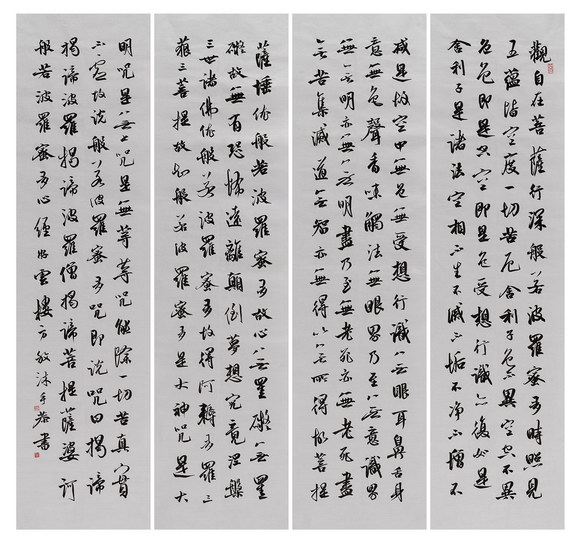 觀自在菩薩行深般若波羅蜜多時照見
五蘊皆空度一切苦厄舍利子色不異空空不異
色色即是空空即是色受想行識亦復如是
舍利子是諸法空相不生不滅不垢不净不增不
減是故空中無色無受想行識無眼耳鼻舌身
意無色聲香味觸法無眼界乃至無意識界
無無明亦無無明盡乃至無老死亦無老死盡
無苦集滅道無智亦無得以無所得故菩提
薩埵依般若波羅蜜多故心無罣礙無罣
礙故無有恐怖遠離顛倒夢想究竟涅槃
三世諸佛依般若波羅蜜多故得阿耨多羅三
藐三菩提故知般若波羅蜜多是大神咒是大
明咒是無上咒是無等等咒能除一切苦真實
不虛故說般若波羅蜜多咒即說咒曰揭諦
揭諦波羅揭諦波羅僧揭諦菩提薩婆訶
般若波羅蜜多心經雲樓方敏沐手恭書